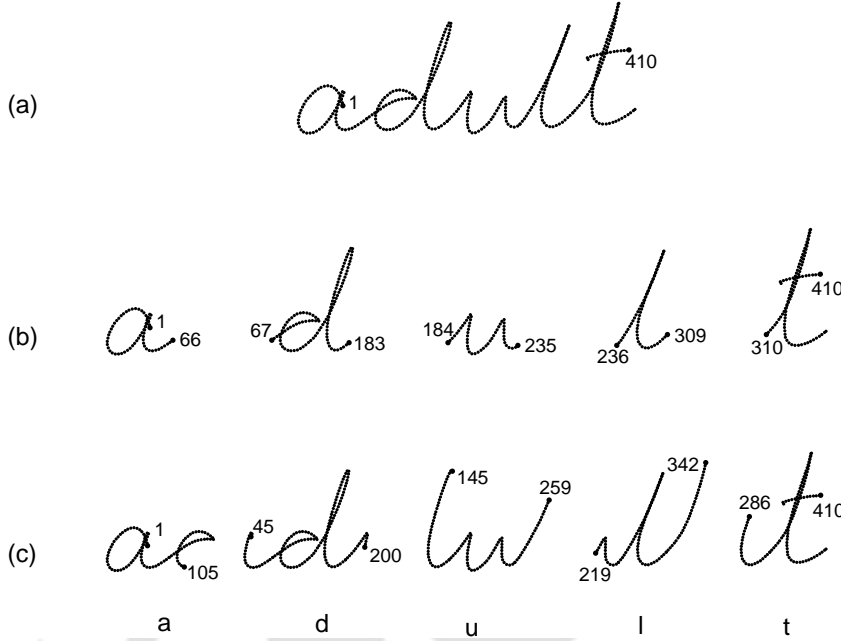 (a) adult 1 410
(b) a 1 66 d 67 183 u 184 235 l 236 309 t 310 410
(c) a 1 105 d 45 200 u 145 259 l 219 342 t 286 410
a d u l t